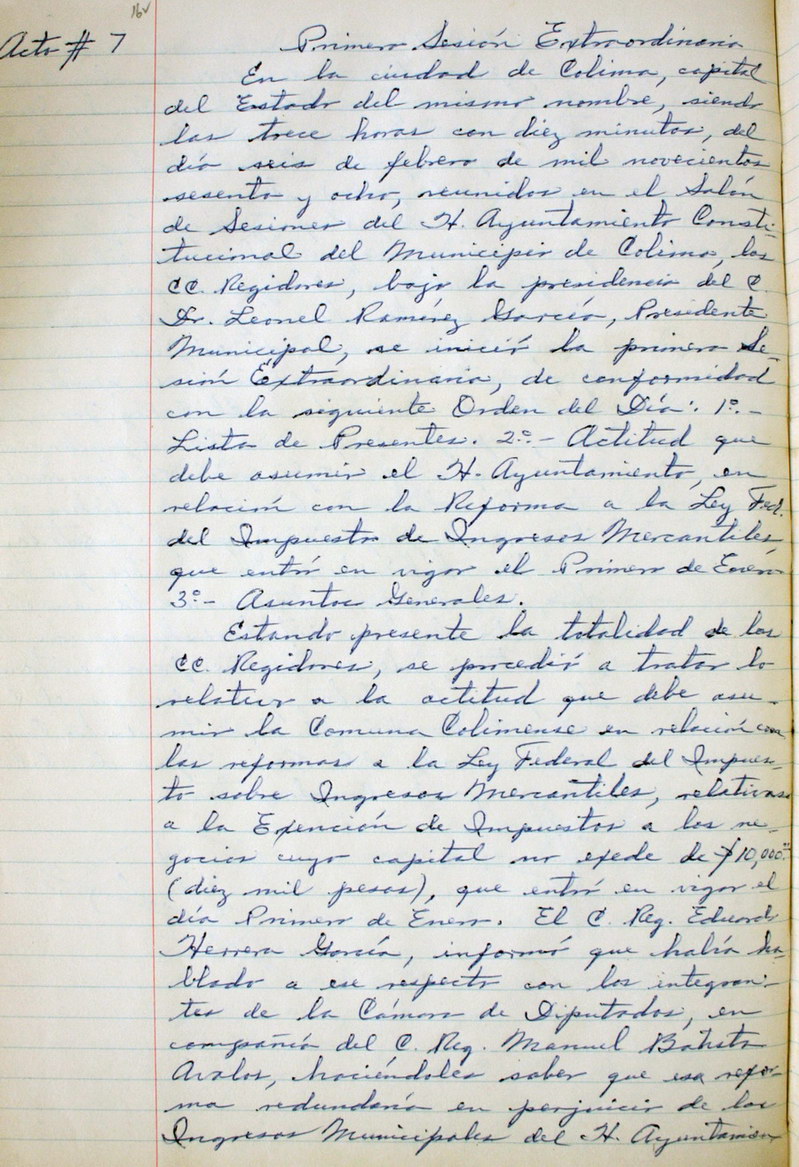 16v
Acta # 7
Primera Sesión Extraordinaria
En la ciudad de Colima, capital
del Estado del mismo nombre, siendo
las trece horas con diez minutos, del
día seis de febrero de mil novecientos
sesenta y ocho, reunidos en el Salón
de Sesiones del H. Ayuntamiento Consti-
tucional del Municipio de Colima, los
CC. Regidores, bajo la presidencia del C.
Dr. Leonel Ramírez García, Presidente
Municipal, se inició la primera Se-
sión Extraordinaria, de conformidad
con la siguiente Orden del Día: 1º.-
Lista de Presentes. 2º.- Actitud que
debe asumir el H. Ayuntamiento, en
relación con la Reforma a la Ley Fed.
del Impuesto de Ingresos Mercantiles
que entró en vigor el Primero de Enero
3º- Asuntos Generales.
Estando presente la totalidad de los
CC. Regidores, se procedió a tratar lo
relativo a la actitud que debe asu-
mir la Comuna Colimense en relación con
las reformas a la Ley Federal del Impues-
to sobre Ingresos Mercantiles, relativas
a la Exención de Impuestos a los ne-
gocios cuyo capital no exede de $10,000.00
(diez mil pesos), que entró en vigor el
día Primero de Enero. El C. Reg. Eduardo
Herrera García, informó que había ha-
blado a ese respecto con los integran-
tes de la Cámara de Diputados, en
compañía del C. Reg. Manuel Batista
Avalos, haciéndoles saber que esa refor-
ma redundaría en perjuicio de los
Ingresos Municipales del H. Ayuntamien